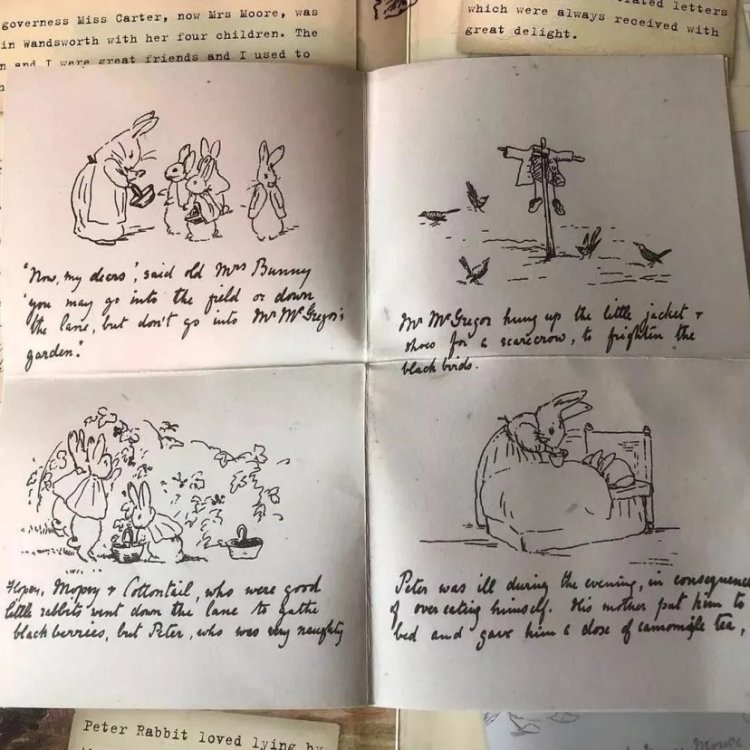 governess Miss Carter, now Mrs Moore, was
in Wandsworth with her four children. The
and I were great friends and I used to
letters
which were always received with
great delight.
'Now, my dears', said old Mrs Bunny
'you may go into the field or down
the lane, but don't go into Mr McGregor's
garden.'
Mr McGregor hung up the little jacket &
shoes for a scarecrow, to frighten the
black birds.
Flopsy, Mopsy & Cottontail, who were good
little rabbits went down the lane to gathe
blackberries, but Peter, who was very naughty
Peter was ill during the evening, in consequence
of over eating himself. His mother put him to
bed and gave him a dose of camomile tea,
Peter Rabbit loved lying by